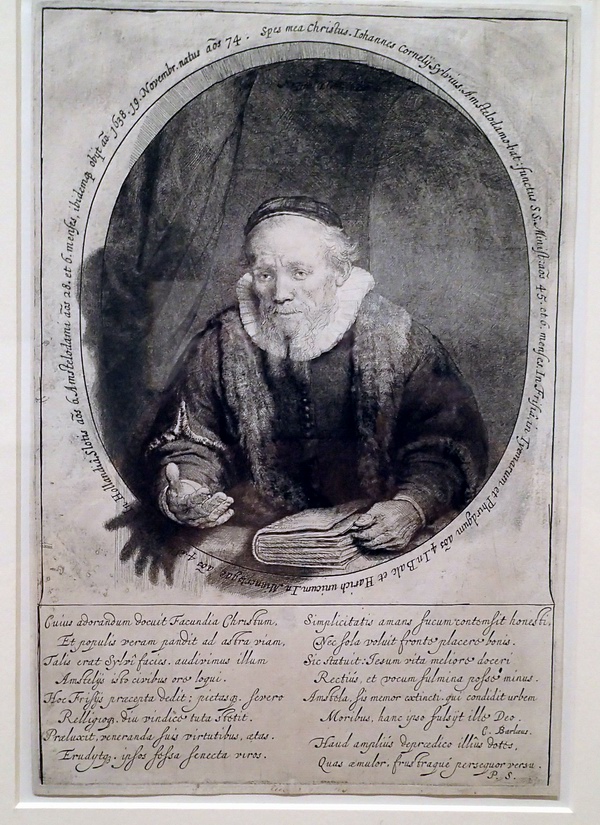 Spes mea Christus. Iohannes Cornelij Sylvius, Amstelodamobat: functus S.S. Minist: aõs 45. et 6. menses. In Frisia: in Tyenarum et Phirdgum aõs 4. In Balc et Harich unicum. In Minnertsgae aõs 4. Hollandiâ Slotis aõs 6. Amstelodami aõs 28. et 6. menses, ibidemq obijt aõ. 1638. 19. Novembr. natus aõs 74.
Cuius adorandum docuit Facundia Christum,
Et populis veram pandit ad astra viam,
Talis erat Sylvî facies. audivimus illum
Amstelijs isto civibus ore loqui.
Hoc Frisijs præcepta dedit; pietasq. severo
Relligioq. diu vindice tuta stetit.
Præluxit, veneranda suis virtutibus, ætas.
Erudytq. ipsos fessa senecta viros.
Simplicitatis amans fucum contemsit honesti,
Nec sola voluit fronte placere bonis.
Sic statuit: Iesum vita meliore doceri
Rectiùs, et vocum fulmina posse minus.
Amstela, sis memor extincti, qui condidit urbem
Moribus, hanc ipso fulsijt ille Deo.
C. Barlæus.
Haud ampliùs deprædico illius dotes,
Quas æmulor, frustraque persequor versu.
P. S.